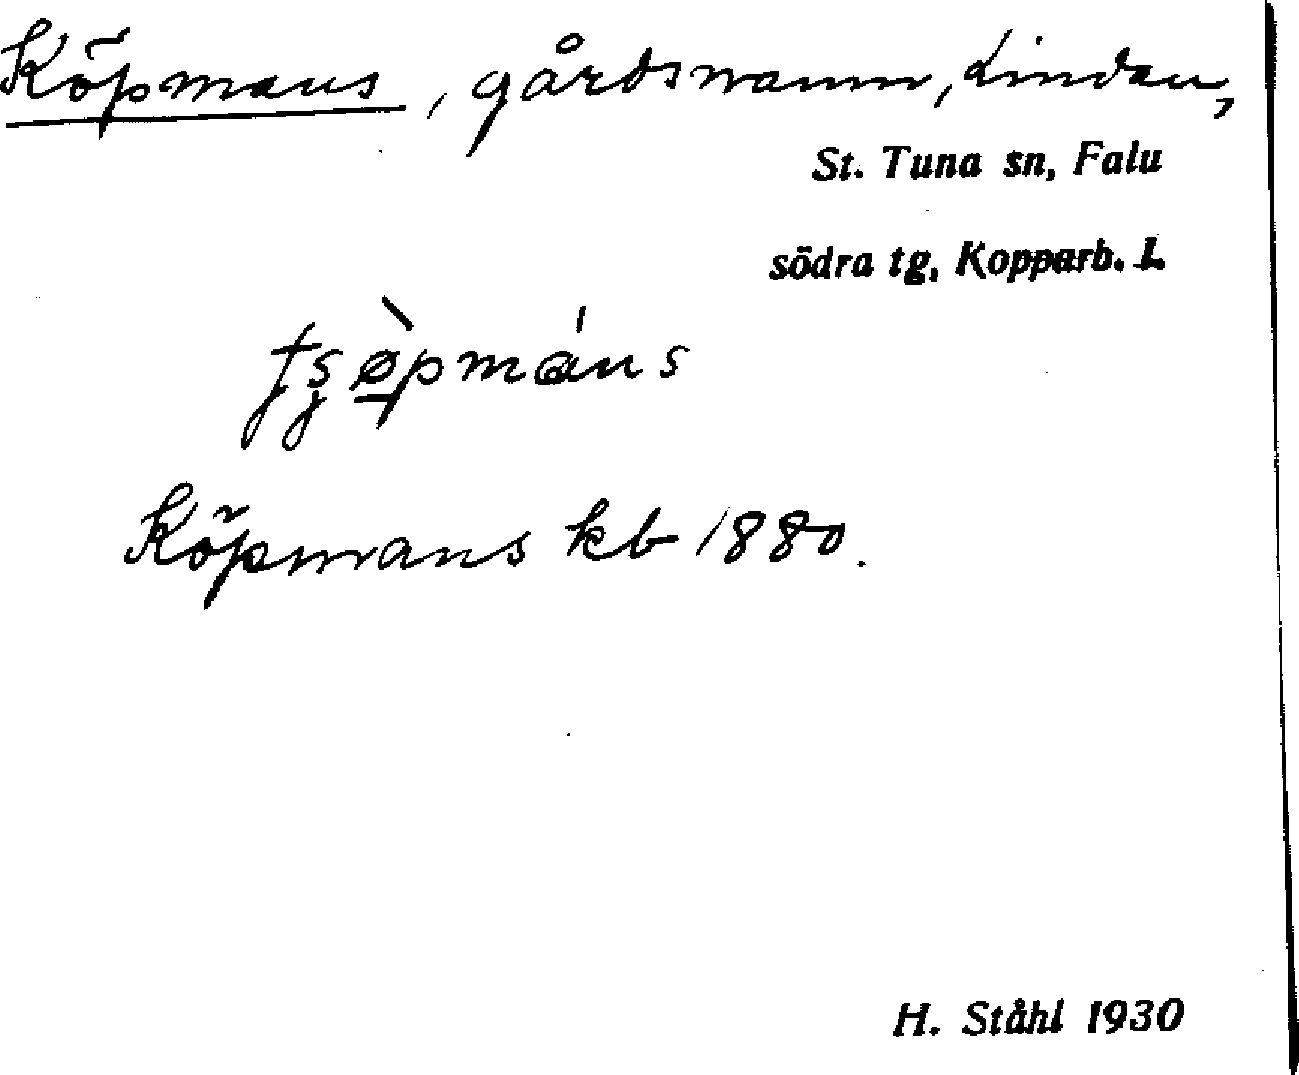 Köpmans, gårdsnamn, Lindan,
St. Tuna sn, Falu
södra tg, Kopparb. l.
Köpmans kb 1880.
H. Ståhl 1930